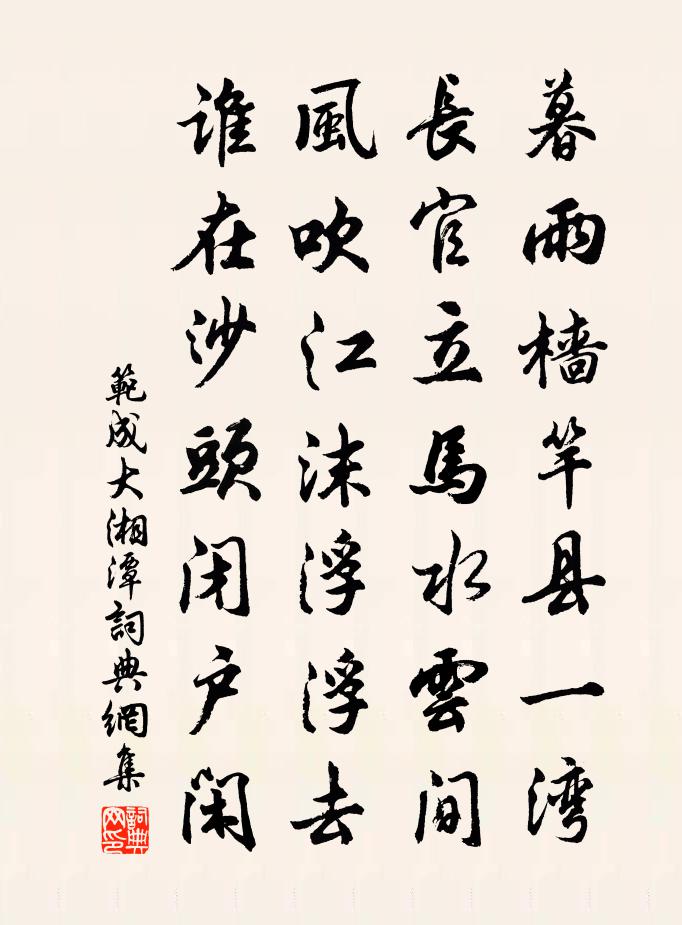 暮雨檣竿县一湾
長官立馬水雲间
風吹江沫浮浮去
誰在沙頭闭户閑
範成大湘潭詞典網集
詞典网印